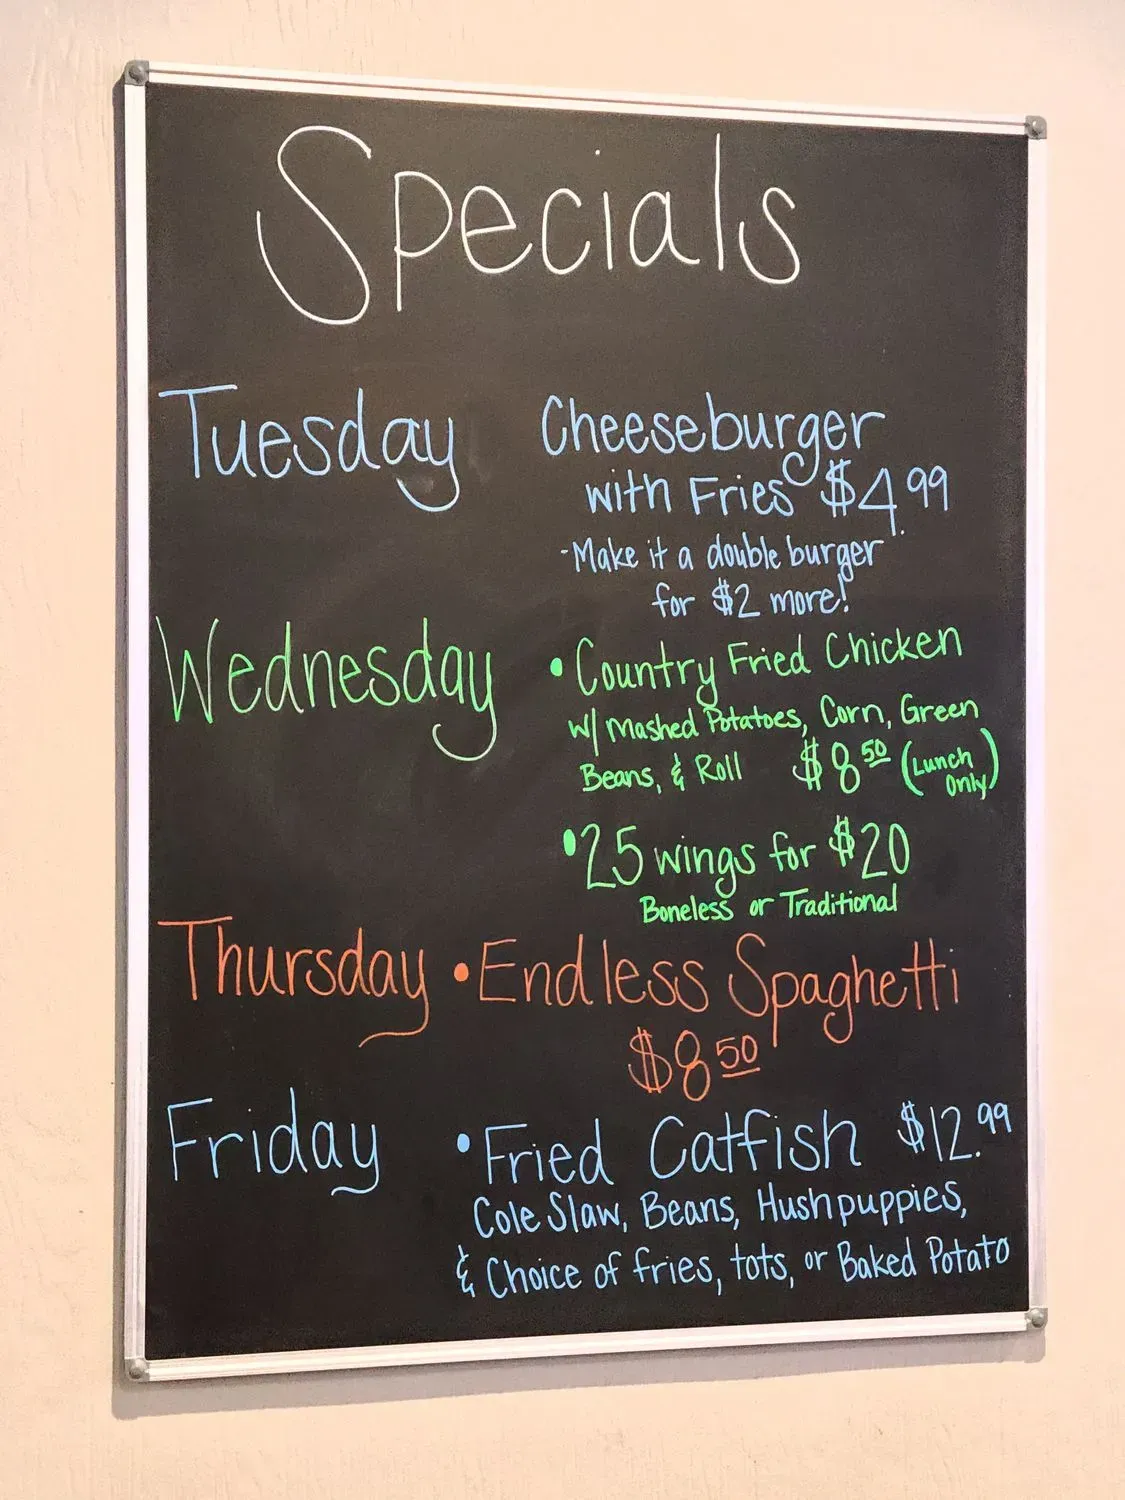 Specials
Tuesday Cheeseburger
with Fries $4.99
-Make it a double burger
for $2 more!
Wednesday • Country Fried Chicken
w/ Mashed Potatoes, Corn, Green
Beans, & Roll $8.50 (Lunch Only)
• 25 wings for $20
Boneless or Traditional
Thursday • Endless Spaghetti
$8 50
Friday • Fried Catfish $12.99
Cole Slaw, Beans, Hushpuppies,
& Choice of fries, tots, or Baked Potato